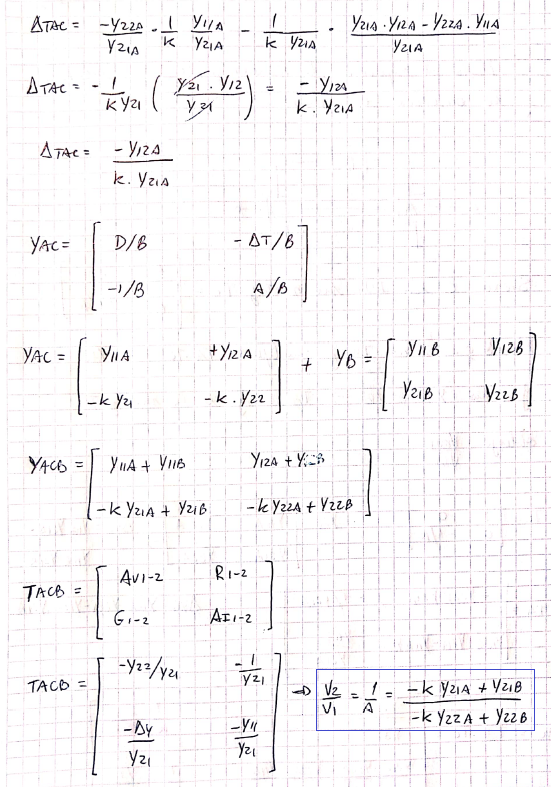 ΔTAC = -Y22A/Y21A · 1/k Y11A/Y21A - 1/(k Y21A) · (Y21A · Y12A - Y22A · Y11A)/Y21A
ΔTAC = - 1/(k Y21) ( (Y21 · Y12)/Y21 ) = - Y12A/(k · Y21A)
ΔTAC = - Y12A/(k · Y21A)
YAC = [ D/B - ΔT/B
-1/B A/B ]
YAC = [ Y11A +Y12A
-k Y21 -k · Y22 ] + YB = [ Y11B Y12B
Y21B Y22B ]
YACB = [ Y11A + Y11B Y12A + Y12B
-k Y21A + Y21B -k Y22A + Y22B ]
TACB = [ AV1-2 R1-2
G1-2 AI1-2 ]
TACB = [ -Y22/Y21 -1/Y21
-ΔY/Y21 -Y11/Y21 ] ⇒ V2/V1 = 1/A = (-k Y21A + Y21B)/(-k Y22A + Y22B)